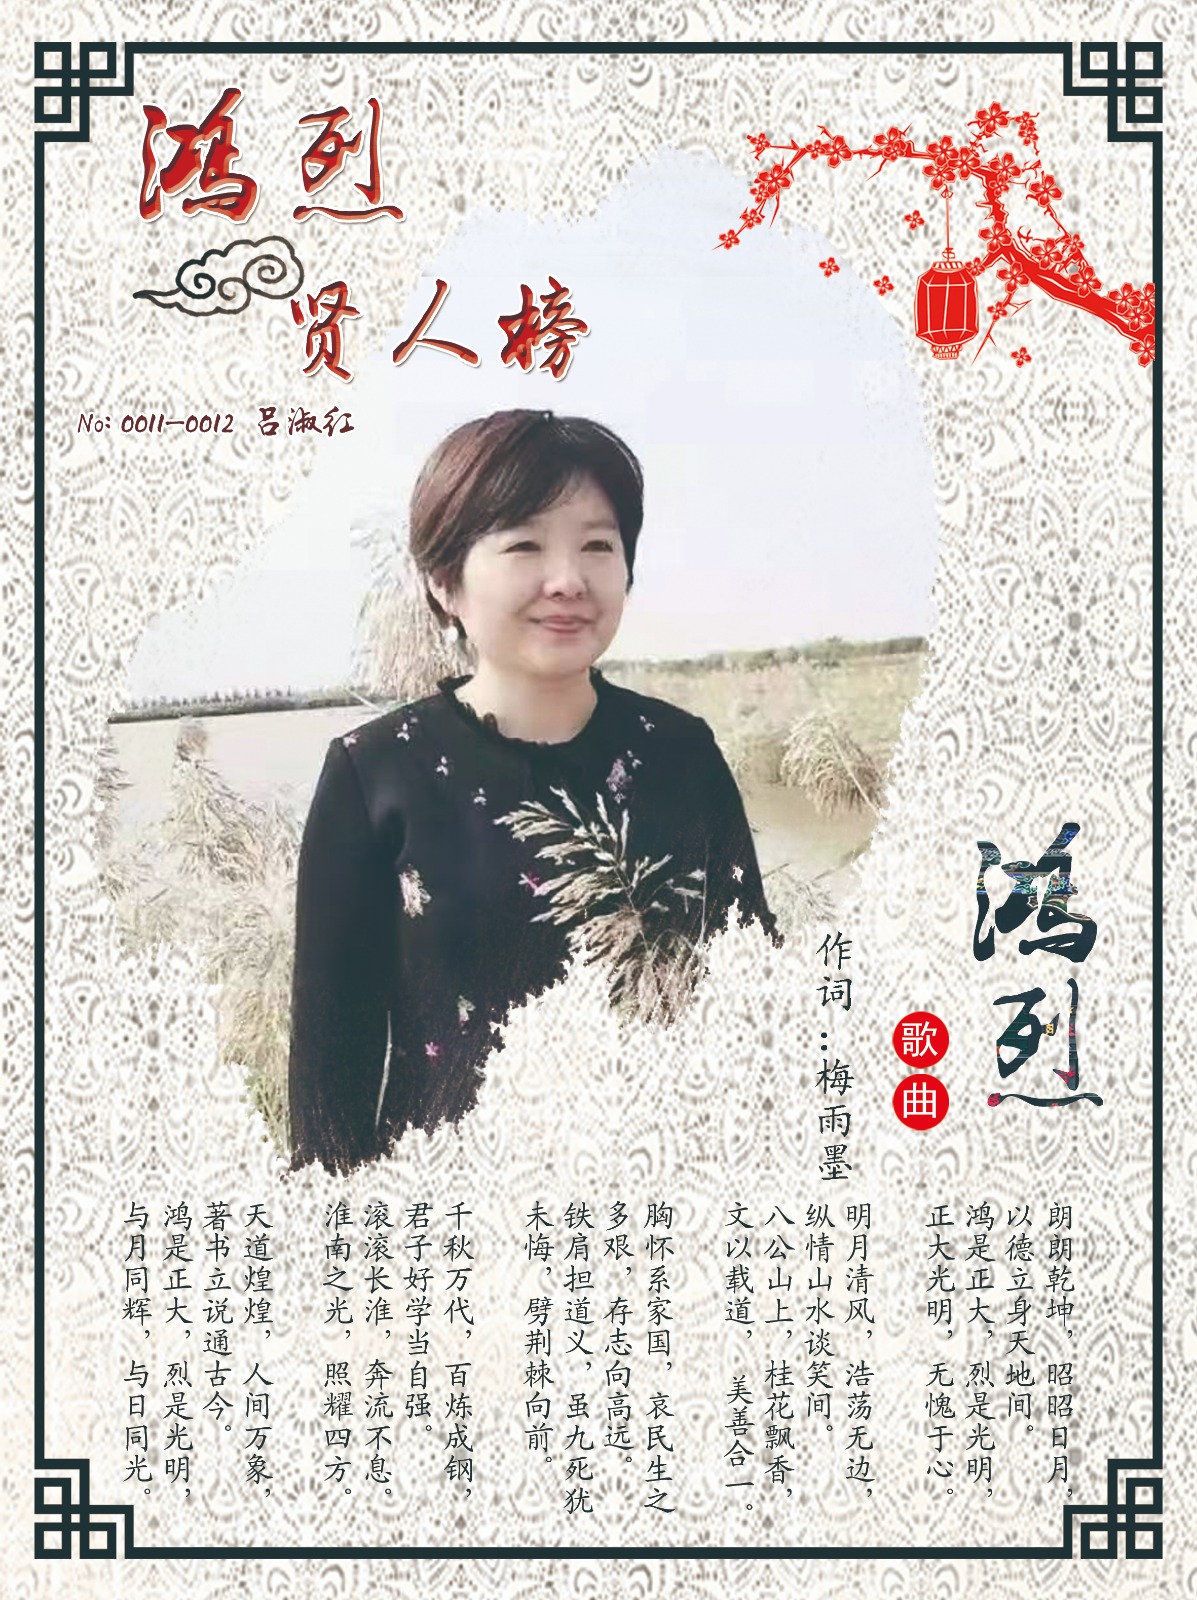 鸿烈
贤人榜
No: 0011—0012 吕淑红
鸿烈
歌曲
作词：梅雨墨
朗朗乾坤，昭昭日月，
以德立身天地间。
鸿是正大，烈是光明，
正大光明，无愧于心。
明月清风，浩荡无边，
纵情山水谈笑间。
八公山上，桂花飘香，
文以载道，美善合一。
胸怀系家国，哀民生之
多艰，存志向高远。
铁肩担道义，虽九死犹
未悔，劈荆棘向前。
千秋万代，百炼成钢，
君子好学当自强。
滚滚长淮，奔流不息。
淮南之光，照耀四方。
天道煌煌，人间万象，
著书立说通古今。
鸿是正大，烈是光明，
与月同辉，与日同光。